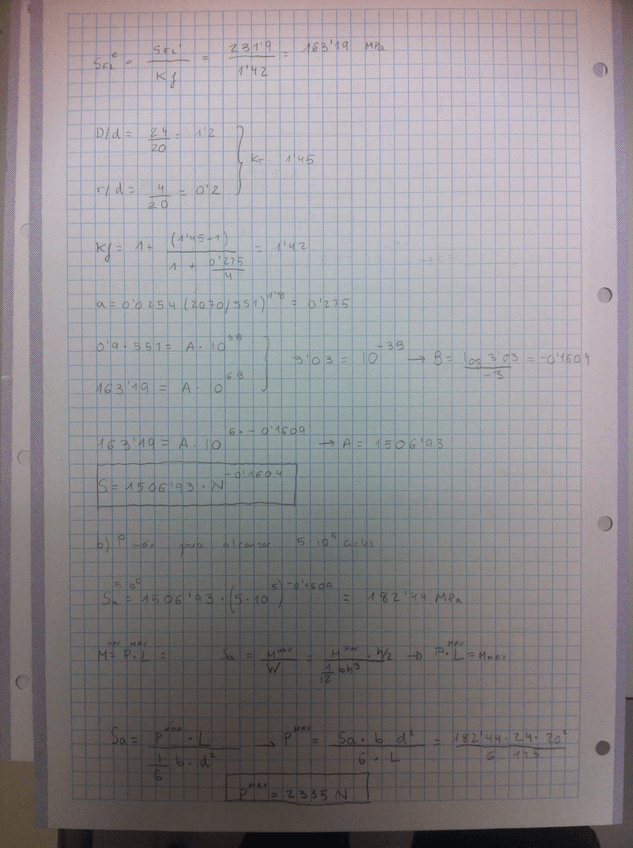 S_FL^e = S_FL' / Kf = 231'9 / 1'42 = 163'19 MPa
D/d = 24/20 = 1'2
K_T = 1'45
r/d = 4/20 = 0'2
Kf = 1 + (1'45-1) / (1 + 0'275/4) = 1'42
a = 0'0254 (2070/551)^1'8 = 0'275
0'9 · 551 = A · 10^3B
3'03 = 10^-3B → B = log 3'03 / -3 = -0'1609
163'19 = A · 0^6B
163'19 = A · 10^6·-0'1609 → A = 1506'93
S = 1506'93 · N^-0'1609
b) P máx para alcanzar 5·10^5 ciclos
= 1506'93 · (5·10^5)^-0'1609 = 182'44 MPa
M^max = P^max · L = Sa = M^max / W = M^max · h/2 / 1/12 bh^3 → P^max · L = M_MAX
Sa = P^MAX · L / 1/6 b · d^2 → P^MAX = Sa · b d^2 / 6 · L = 182'44 · 24 · 20^2 / 6 125
P^MAX = 2335 N